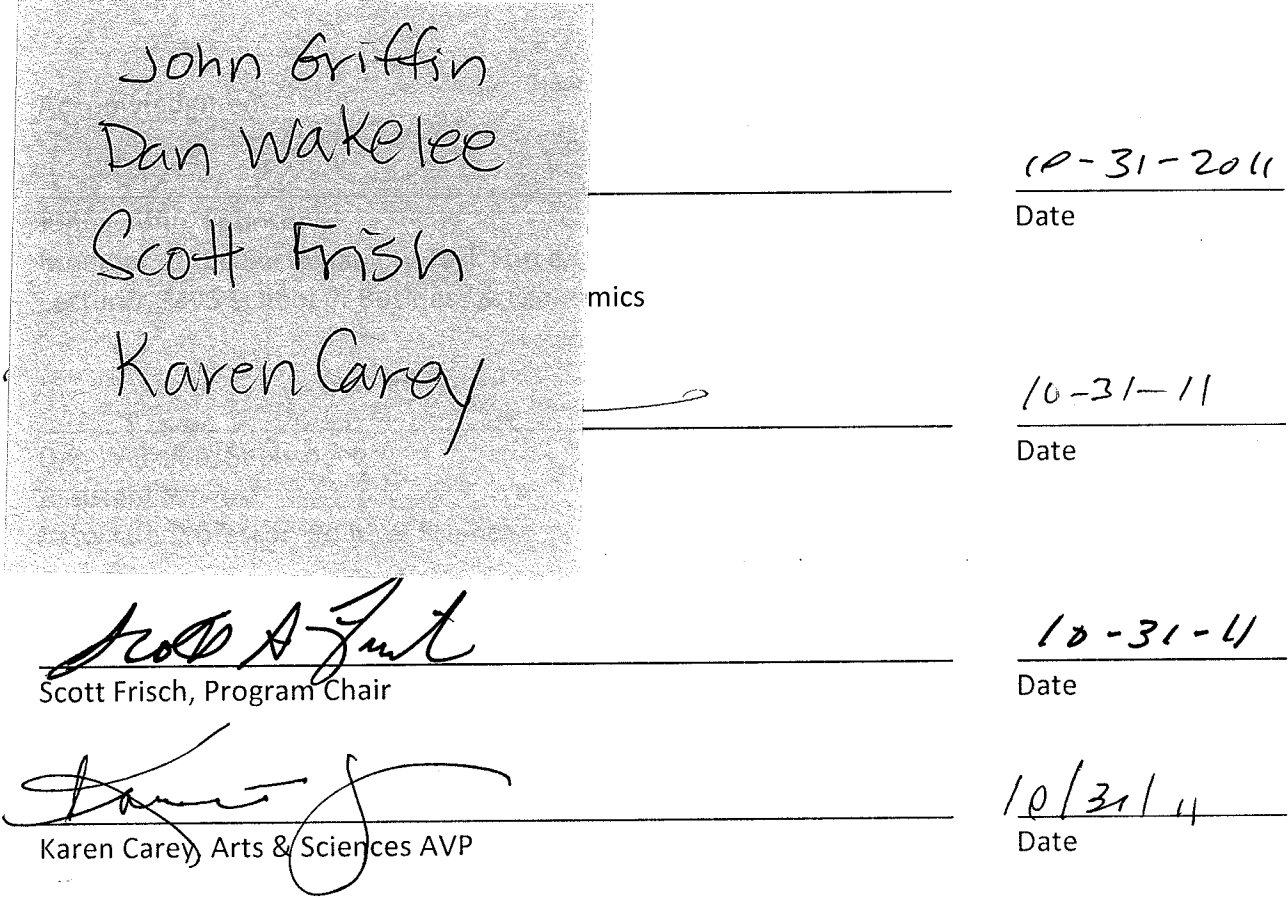 John Griffin
Dan Wakelee
Scott Frish
Karen Carey
10-31-2011
Date
mics
10-31-11
Date
Scott A Frisch
10-31-11
Scott Frisch, Program Chair
Date
10/31/11
Karen Carey, Arts & Sciences AVP
Date